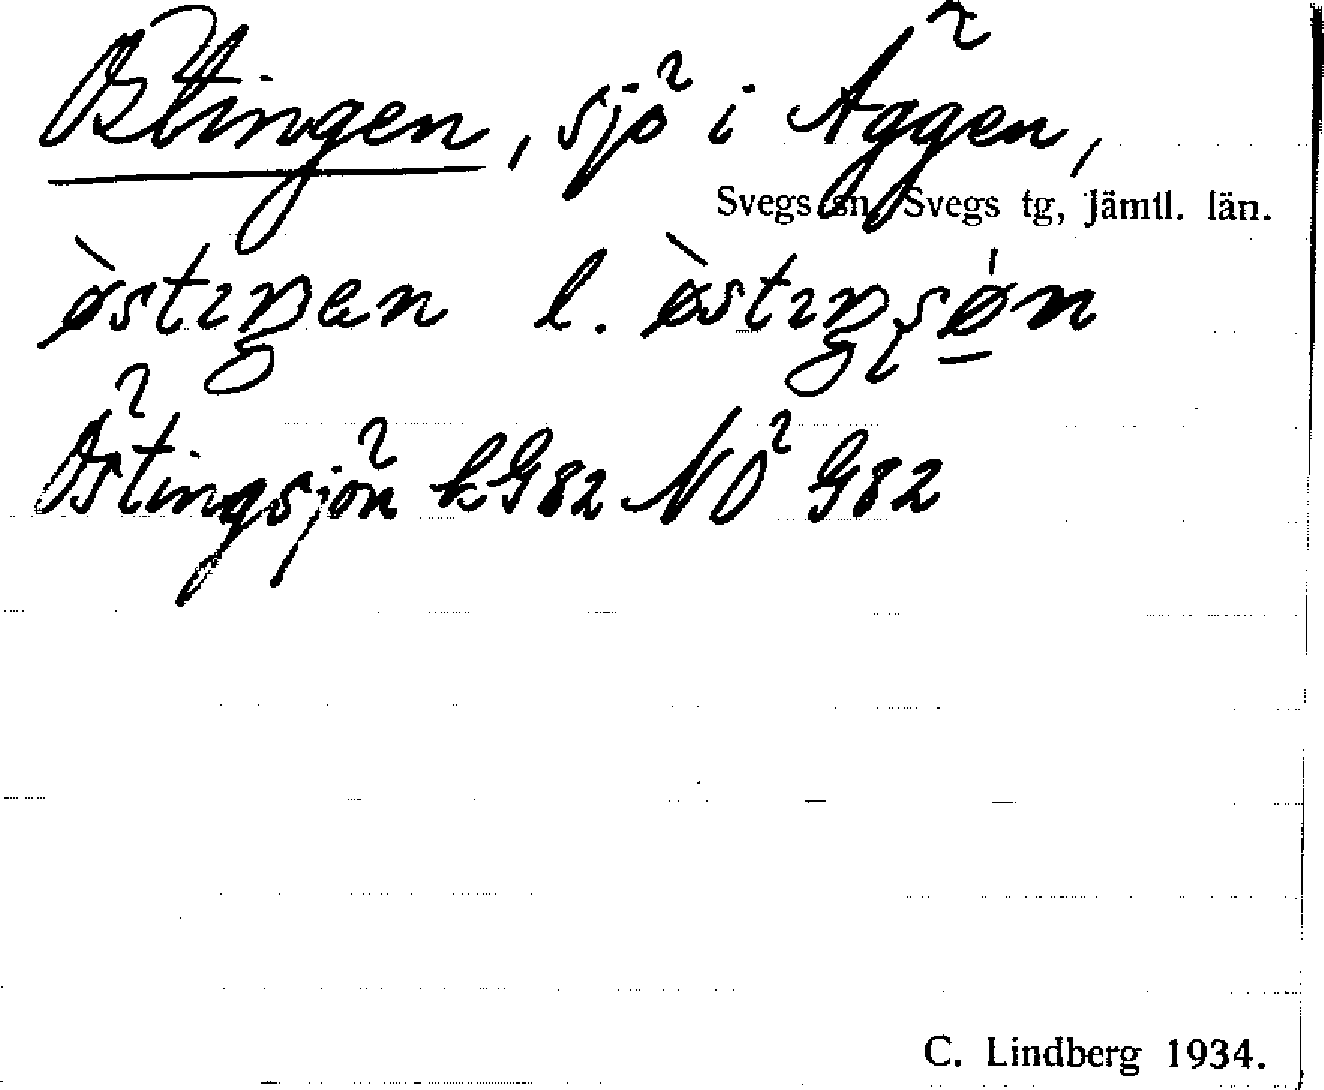 Östingen, sjö i Äggen,
Svegs sn, Svegs tg, Jämtl. län.
ø̀stıŋen l. ø̀stıŋʂǿ̠n
Östingsjön kG82 NÖ G82
C. Lindberg 1934.